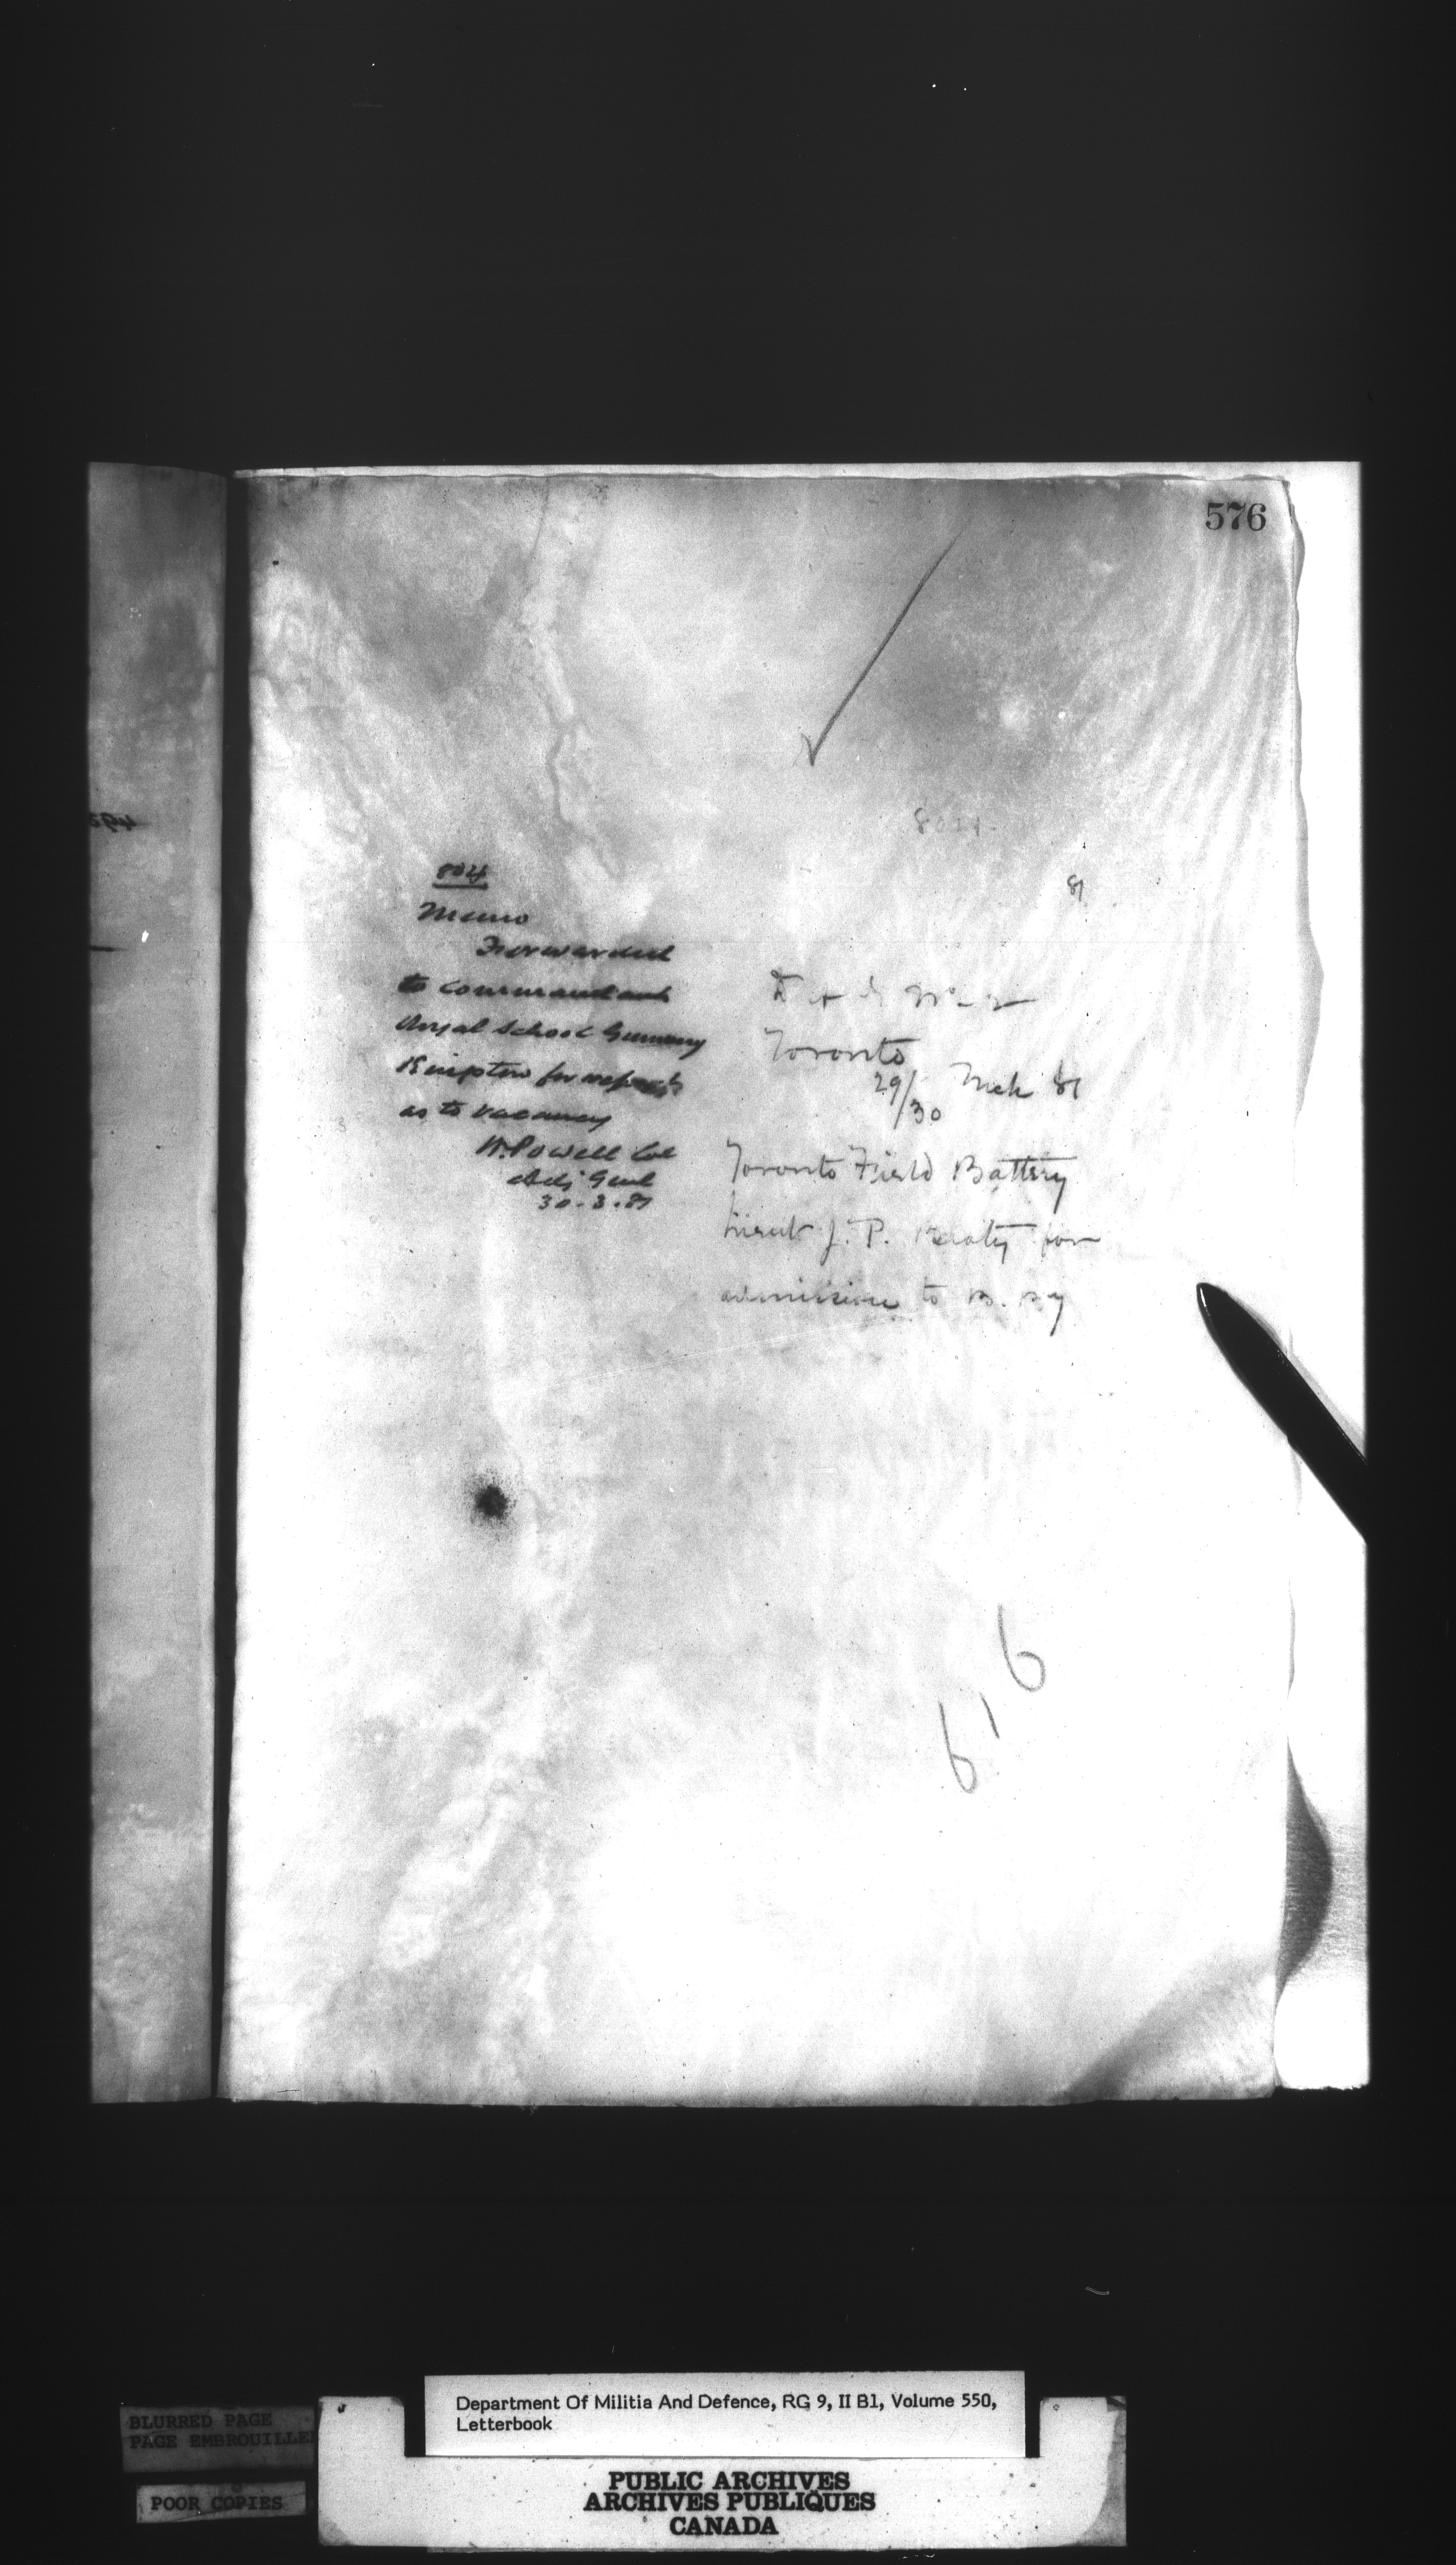 576
8024
804
Memo
Forwarded
to Commandant
Royal School Gunnery
Kingston for report
as to vacancy
W. Powell Col
Adj Genl
30-3-81
81
Toronto
29/30 Mch 81
Toronto Field Battery
Lieut J. P. Beaty for
admission to B. By
616
Department Of Militia And Defence, RG 9, II B1, Volume 550,
Letterbook
BLURRED PAGE
PAGE EMBROUILLEE
POOR COPIES
PUBLIC ARCHIVES
ARCHIVES PUBLIQUES
CANADA